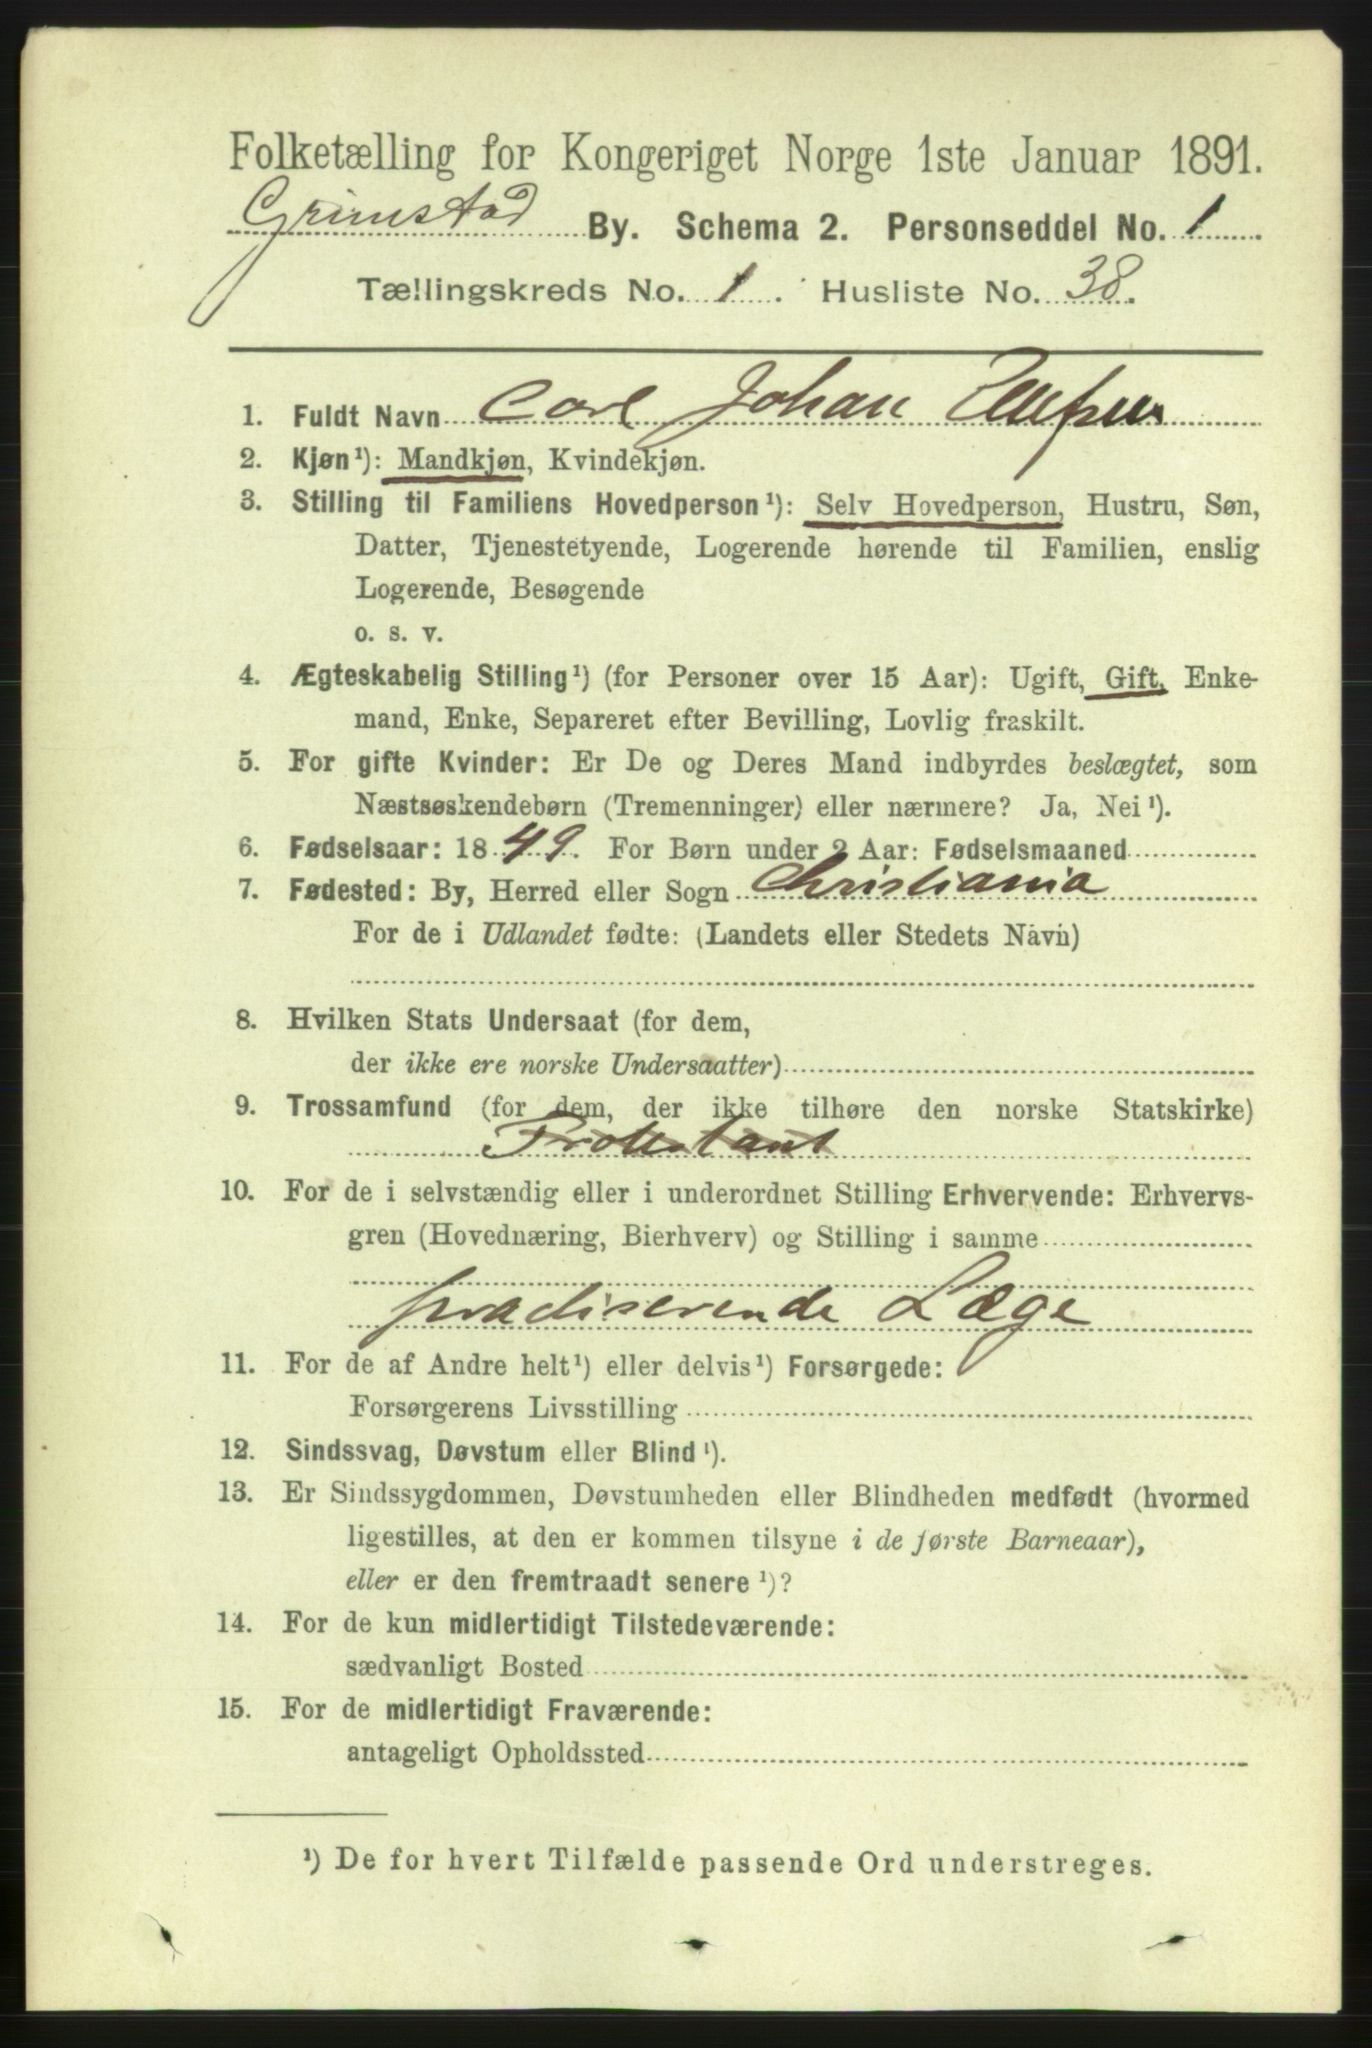 Folketælling for Kongeriget Norge 1ste Januar 1891.
Grimstad By. Schema 2. Personseddel No. 1
Tællingskreds No. 1. Husliste No. 38.
1. Fuldt Navn Carl Johan
2. Kjøn¹): Mandkjøn, Kvindekjøn.
3. Stilling til Familiens Hovedperson¹): Selv Hovedperson, Hustru, Søn,
Datter, Tjenestetyende, Logerende hørende til Familien, enslig
Logerende, Besøgende
o. s. v.
4. Ægteskabelig Stilling¹) (for Personer over 15 Aar): Ugift, Gift, Enke-
mand, Enke, Separeret efter Bevilling, Lovlig fraskilt.
5. For gifte Kvinder: Er De og Deres Mand indbyrdes beslægtet, som
Næstsøskendebørn (Tremenninger) eller nærmere? Ja, Nei¹).
6. Fødselsaar: 1849. For Børn under 2 Aar: Fødselsmaaned
7. Fødested: By, Herred eller Sogn Christiania
For de i Udlandet fødte: (Landets eller Stedets Navn)
8. Hvilken Stats Undersaat (for dem,
der ikke ere norske Undersaatter)
9. Trossamfund (for dem, der ikke tilhøre den norske Statskirke)
Protestant
10. For de i selvstændig eller i underordnet Stilling Erhvervende: Erhvervs-
gren (Hovednæring, Bierhverv) og Stilling i samme
practiserende Læge
11. For de af Andre helt¹) eller delvis¹) Forsørgede:
Forsørgerens Livsstilling
12. Sindssvag, Døvstum eller Blind¹).
13. Er Sindssygdommen, Døvstumheden eller Blindheden medfødt (hvormed
ligestilles, at den er kommen tilsyne i de første Barneaar),
eller er den fremtraadt senere¹)?
14. For de kun midlertidigt Tilstedeværende:
sædvanligt Bosted
15. For de midlertidigt Fraværende:
antageligt Opholdssted
¹) De for hvert Tilfælde passende Ord understreges.